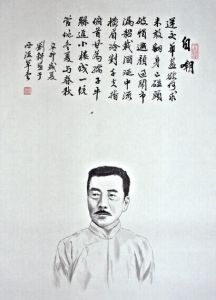 自嘲
運交華蓋欲何求
未敢翻身已碰頭
破帽遮顏過鬧市
漏船載酒泛中流
橫眉冷對千夫指
俯首甘為孺子牛
躲進小樓成一統
管他冬夏與春秋
辛卯歲夏